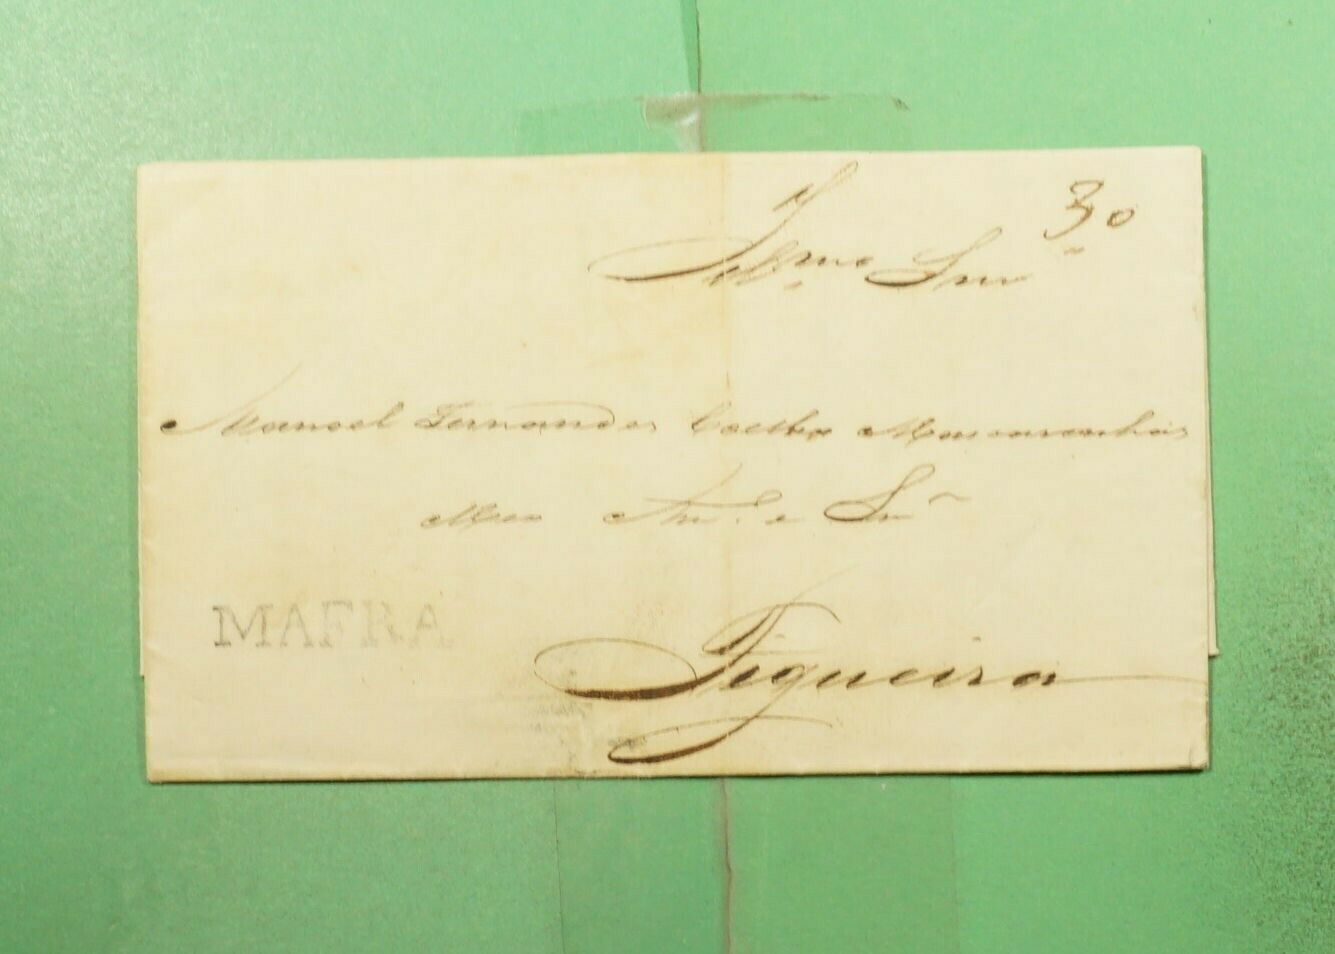 30
Illmo Snr
Manoel Fernandes Coelho Mascarenhas
Meu Am.º e Snr
MAFRA
Figueira